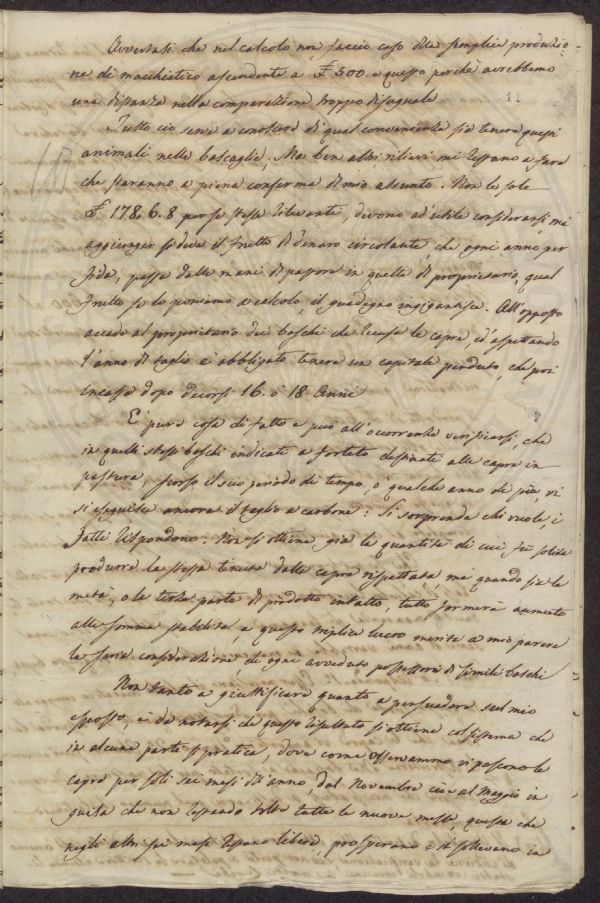 Avvertasi che nel calcolo non faccio caso della semplice produzio=
ne di macchiatico ascendente a £ 500. e questo perchè avrebbemo
una distanza nella comparazione troppo disuguale
11
Tutto ciò serve a conoscere di qual conveniente sia tenere questi
animali nelle boscaglie; Ma ben altri rilievi mi restano a fare
che staranno a piena conferma di mio assunto. Non le sole
£ 178. 6. 8 per se stesse rilevante, devono ad'utile considerarsi, mà
aggiunger si deve il frutto di denaro circolante, che ogni anno per
fida, passa dalle mani di pastore in quelle di proprietario, qual
frutto se lo poniamo a calcolo, il guadagno ingigantisce. All'opposto
accade al proprietario dei boschi che recusa le capre, ed aspettando
l'anno di taglio è obbligato tenere un capitale perduto, che poi
incassa dopo decorsi 16. o 18. Anni
E' pure cosa di fatto e può all'ocorrente verificarsi, che
in quelli stessi boschi indicati a destinati alle capre in
pastura, scorso il suo periodo di tempo, o qualche anno di più, vi
si eseguisce ancora il taglio a carbone: Si sorprenda chi vuole i
fatti rispondono: Non si ottiene già le quantità di cui, fu solita
produrre la stessa tenuta dalle capre rispettata mà quando sia la
metà, o la terza parte di prodotto intatto, tutto formerà aumento
alla somma stabilita, e questo triplice lucro merita a mio parere
la seria considerazione, di ogni avveduto possessore di simili boschi
Non tanto a giustificare quanto a persuadere sul mio
esposto, è da notarsi che questo resultato si ottiene col sistema che
in alcune parte si pratica, dove come osservammo vi pascono le
capre per soli sei mesi dell'anno, dal Novembre cioè al Maggio in
guisa che non restando tutte le nuove messe, queste che
negli altri sei mesi restano libere, prosperano e si sollevano in